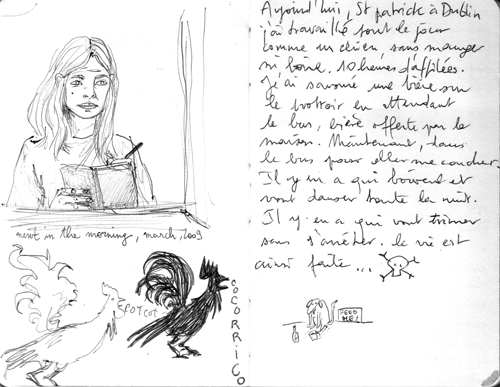 next in the morning, march, 2009
COTCOT
COCORRICO
Aujourd'hui, St patrick à Dublin
j'ai travaillé tout le jour
comme un chien, sans manger
ni boire. 10 heures d'affilées.
J'ai savouré une bière sur
le trottoir en attendant
le bus, bière offerte par la
maison. Maintenant, dans
le bus pour aller me coucher.
Il y en a qui boivent et
vont danser toute la nuit.
Il y en a qui vont trimer
sans s'arrêter. la vie est
ainsi faite...
FEED
ME!